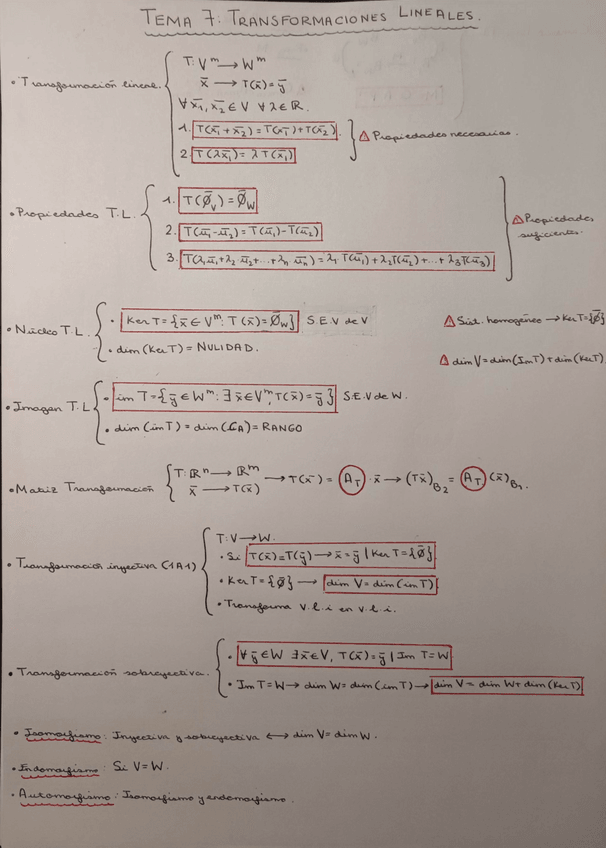 TEMA 7: TRANSFORMACIONES LINEALES.
• Transformación lineal.
T: Vᵐ → Wᵐ
x̄ → T(x̄) = ȳ
∀ x̄₁, x̄₂ ∈ V ∀ λ ∈ ℝ.
1. T(x̄₁ + x̄₂) = T(x̄₁) + T(x̄₂)
2. T(λx̄₁) = λ T(x̄₁)
⚠ Propiedades necesarias.
• Propiedades T.L.
1. T(Ø̄_V) = Ø̄_W
2. T(ū₁ - ū₂) = T(ū₁) - T(ū₂)
3. T(λ₁ū₁ + λ₂·ū₂ + ... + λₙ ūₙ) = λ₁ T(ū₁) + λ₂T(ū₂) + ... + λ₃T(ū₃)
⚠ Propiedades
suficientes.
• Núcleo T.L.
• Ker T = {x̄ ∈ Vᵐ: T(x̄) = Ø̄_W} S.E.V de V
• dim (Ker T) = NULIDAD.
⚠ Sist. homogéneo → Ker T = {Ø̄}
⚠ dim V = dim(Im T) + dim(Ker T)
• Imagen T.L
• im T = {ȳ ∈ Wᵐ: ∃ x̄ ∈ Vᵐ, T(x̄) = ȳ} S.E.V de W.
• dim (im T) = dim (C_A) = RANGO
• Matriz Transformación
T: ℝⁿ → ℝᵐ
x̄ → T(x̄)
→ T(x̄) = A_T · x̄ → (Tx̄)_B₂ = A_T (x̄)_B₁.
• Transformación inyectiva (1A1)
T: V → W.
• Si T(x̄) = T(ȳ) → x̄ = ȳ | Ker T = {Ø̄}
• Ker T = {Ø̄} → dim V = dim (im T)
• Transforma v.l.i en v.l.i.
• Transformación sobreyectiva.
• ∀ ȳ ∈ W ∃ x̄ ∈ V, T(x̄) = ȳ | Im T = W
• Im T = W → dim W = dim (im T) → dim V = dim W + dim (Ker T)
• Isomorfismo: Inyectiva y sobreyectiva ↔ dim V = dim W.
• Endomorfismo: Si V = W.
• Automorfismo: Isomorfismo y endomorfismo.